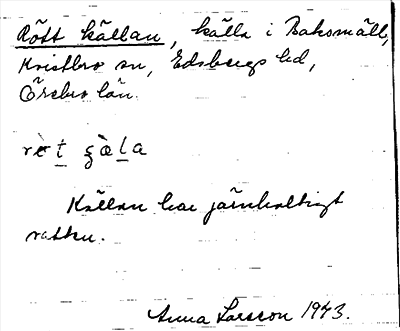 Rött källan, källa i Bakomäll,
Kvistbro sn, Edsbergs hd,
Örebro län.
Källan har järnhaltigt
vatten.
Anna Larsson 1943.